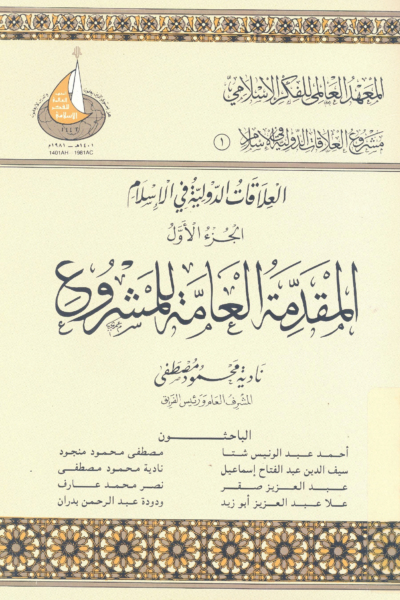 المعهد العالمي للفكر الإسلامي
مشروع العلاقات الدولية في الإسلام ١
١٤٠١هـ - ١٩٨١م
1401AH - 1981AC
العلاقات الدولية في الإسلام
الجزء الأول
المقدمة العامة للمشروع
نادية محمود مصطفى
المشرف العام ورئيس الفريق
الباحثـــون
أحمد عبد الونيس شتا
مصطفى محمود منجود
سيف الدين عبد الفتاح إسماعيل
نادية محمود مصطفى
عبد العزيز صقر
نصر محمد عارف
علا عبد العزيز أبو زيد
ودودة عبد الرحمن بدران